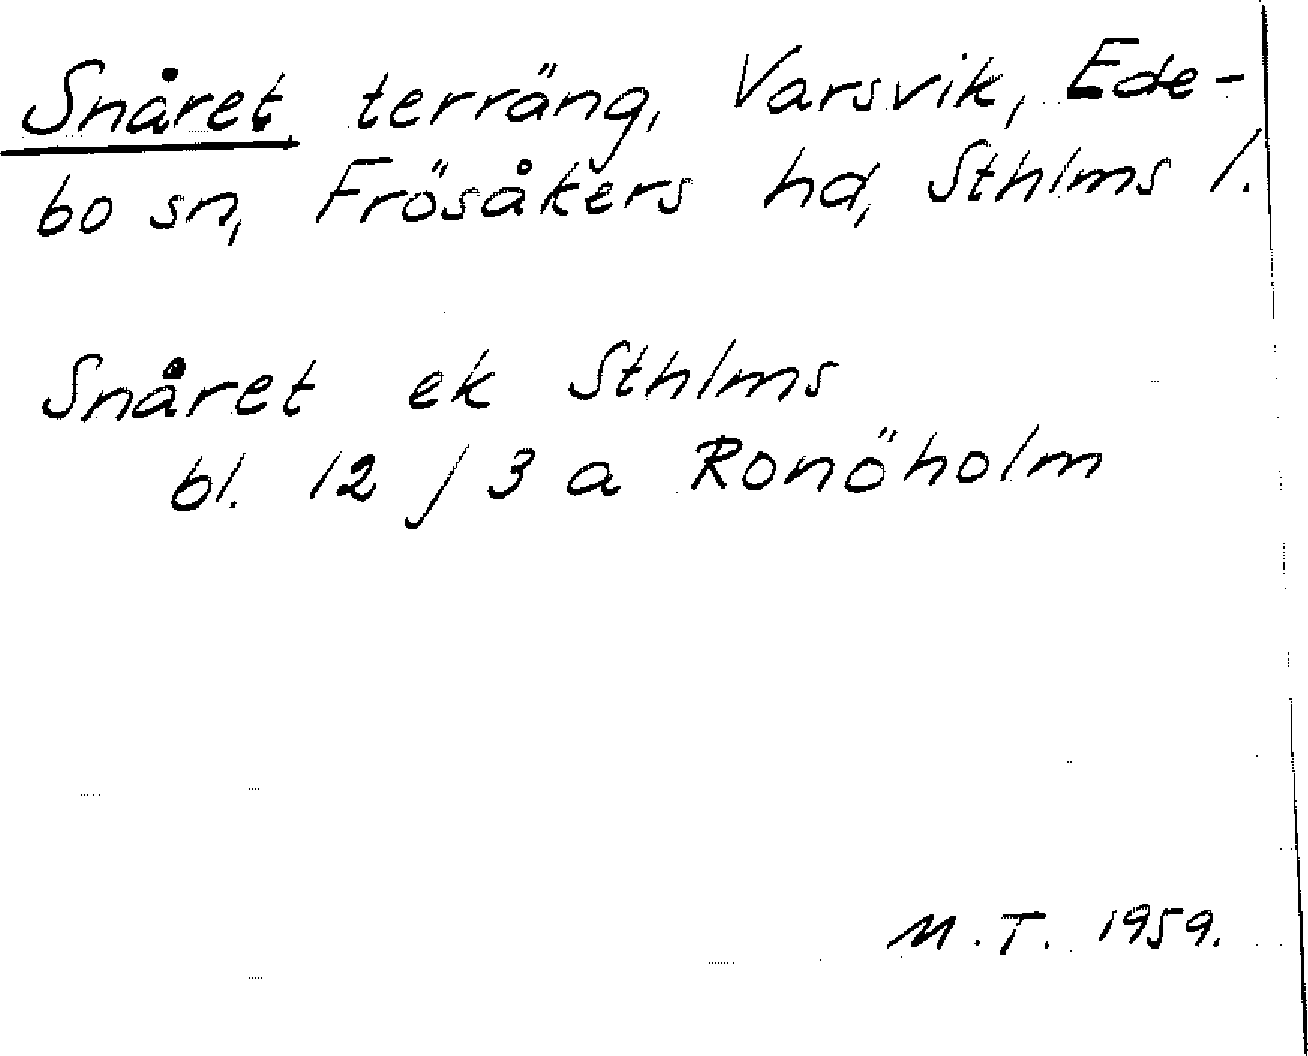 Snåret terräng, Varsvik, Ede-
bo sn, Frösåkers hd, Sthlms l.
Snåret ek Sthlms
bl. 12 j 3 a Ronöholm
M.T. 1959.